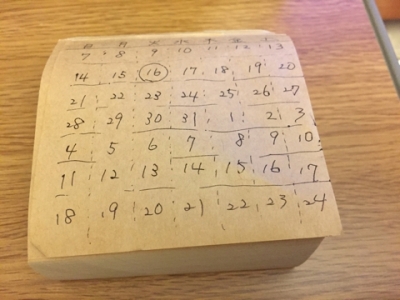 日 月 火 水 木 金 土
7 8 9 10 11 12 13
14 15 16 17 18 19 20
21 22 23 24 25 26 27
28 29 30 31 1 2 3
4 5 6 7 8 9 10
11 12 13 14 15 16 17
18 19 20 21 22 23 24